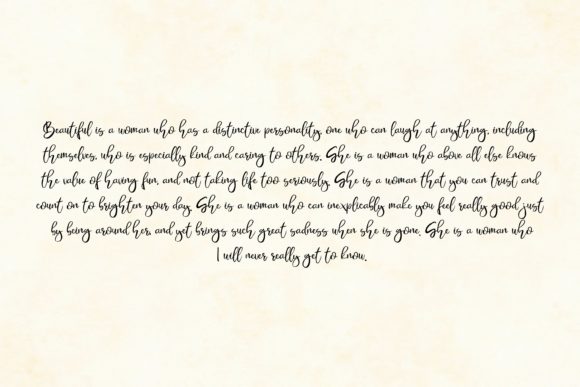 Beautiful is a woman who has a distinctive personality, one who can laugh at anything, including
themselves, who is especially kind and caring to others. She is a woman who above all else knows
the value of having fun, and not taking life too seriously. She is a woman that you can trust and
count on to brighten your day. She is a woman who can inexplicably make you feel really good just
by being around her, and yet brings such great sadness when she is gone. She is a woman who
I will never really get to know.